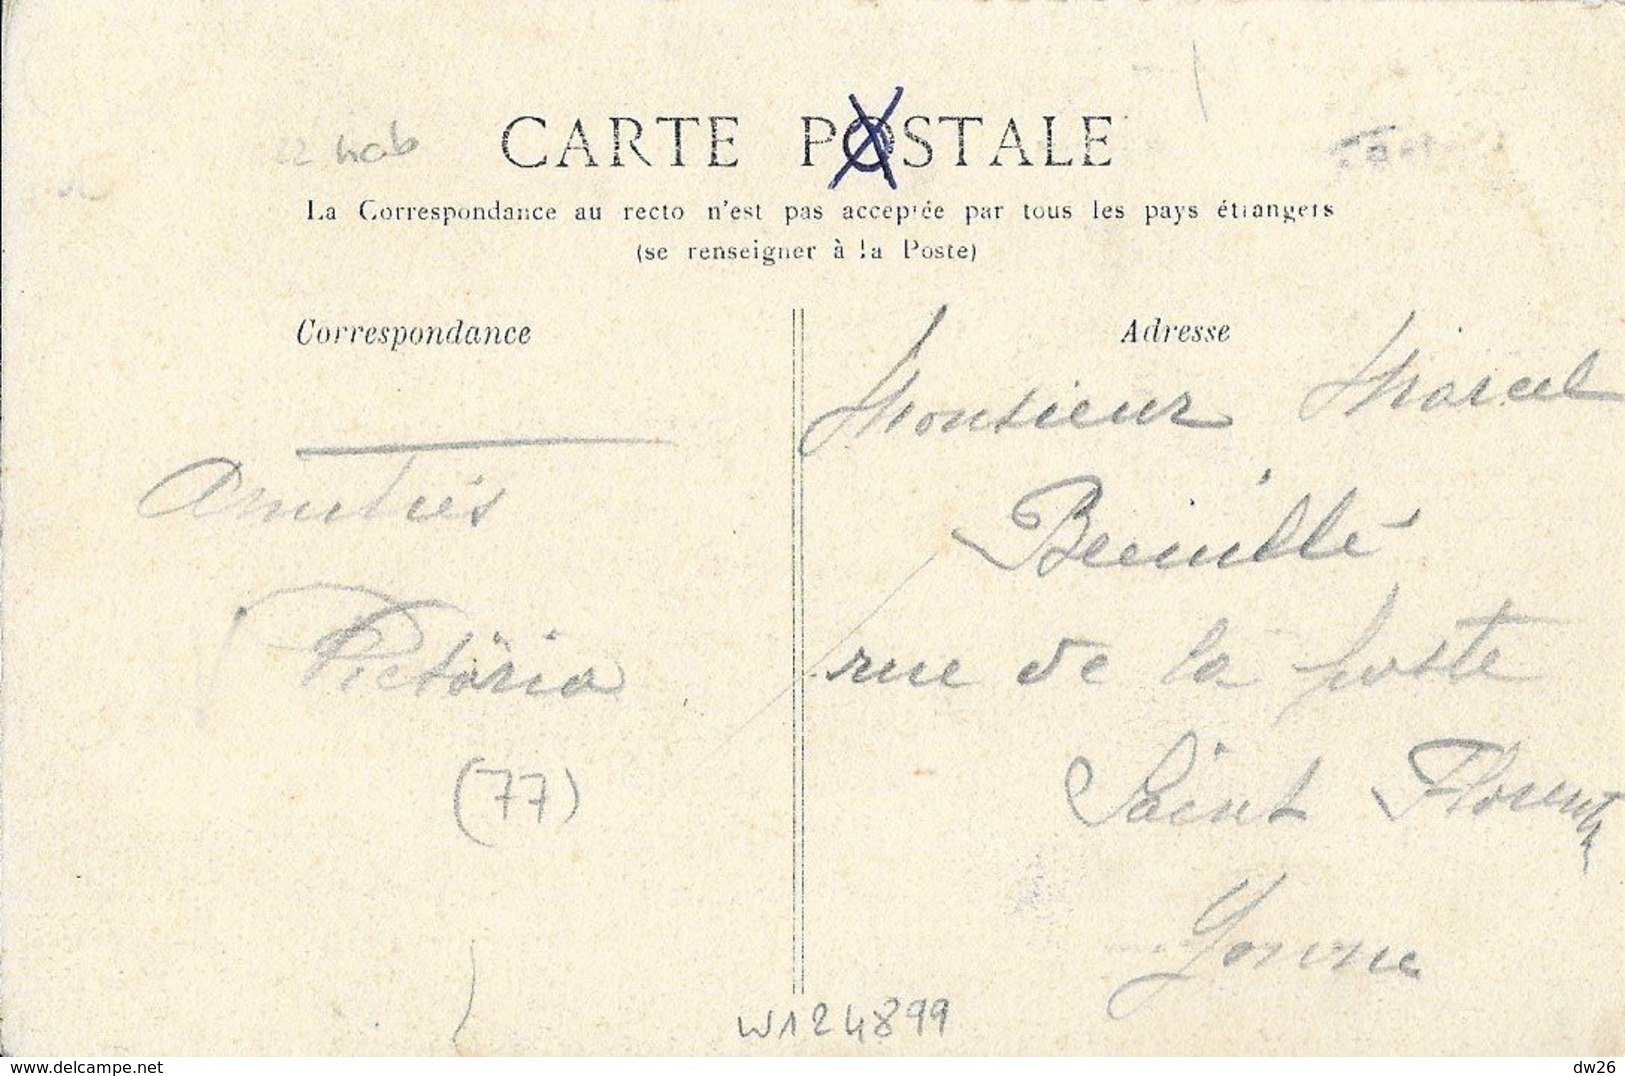 CARTE POSTALE
La Correspondance au recto n'est pas acceptée par tous les pays étrangers
(se renseigner à la Poste)
Correspondance
Adresse
Amitiés
Victoria
(77)
Monsieur Marcel
rue de la poste
Saint Florentin
Yonne
W124899
www.delcampe.net
dw26